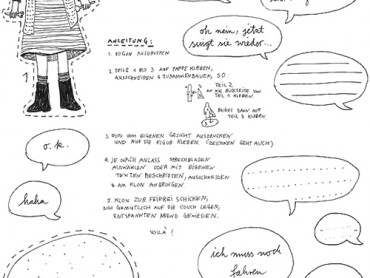 oh nein, jetzt
singt sie wieder...
ANLEITUNG:
1. BOGEN AUSDRUCKEN
2. TEILE 1 BIS 3 AUF PAPPE KLEBEN,
AUSSCHNEIDEN & ZUSAMMENBAUEN, SO:
TEIL 2
AN DIE RÜCKSEITE VON
TEIL 1 KLEBEN.
BEIDES DANN AUF
TEIL 3 KLEBEN
1
3. FOTO VOM EIGENEN GESICHT AUSDRUCKEN
UND AUF DIE FIGUR KLEBEN (ZEICHNEN GEHT AUCH)
o.k.
4. JE NACH ANLASS SPRECHBLASEN
AUSWÄHLEN ODER MIT EIGENEN
TEXTEN BESCHRIFTEN, AUSSCHNEIDEN
& AM KLON ANBRINGEN.
haha.
5. KLON ZUR FEIEREI SCHICKEN,
SICH GEMÜTLICH AUF DIE COUCH LEGEN,
ENTSPANNTEN ABEND GENIESSEN.
VOILÀ!
ich muss noch
fahren